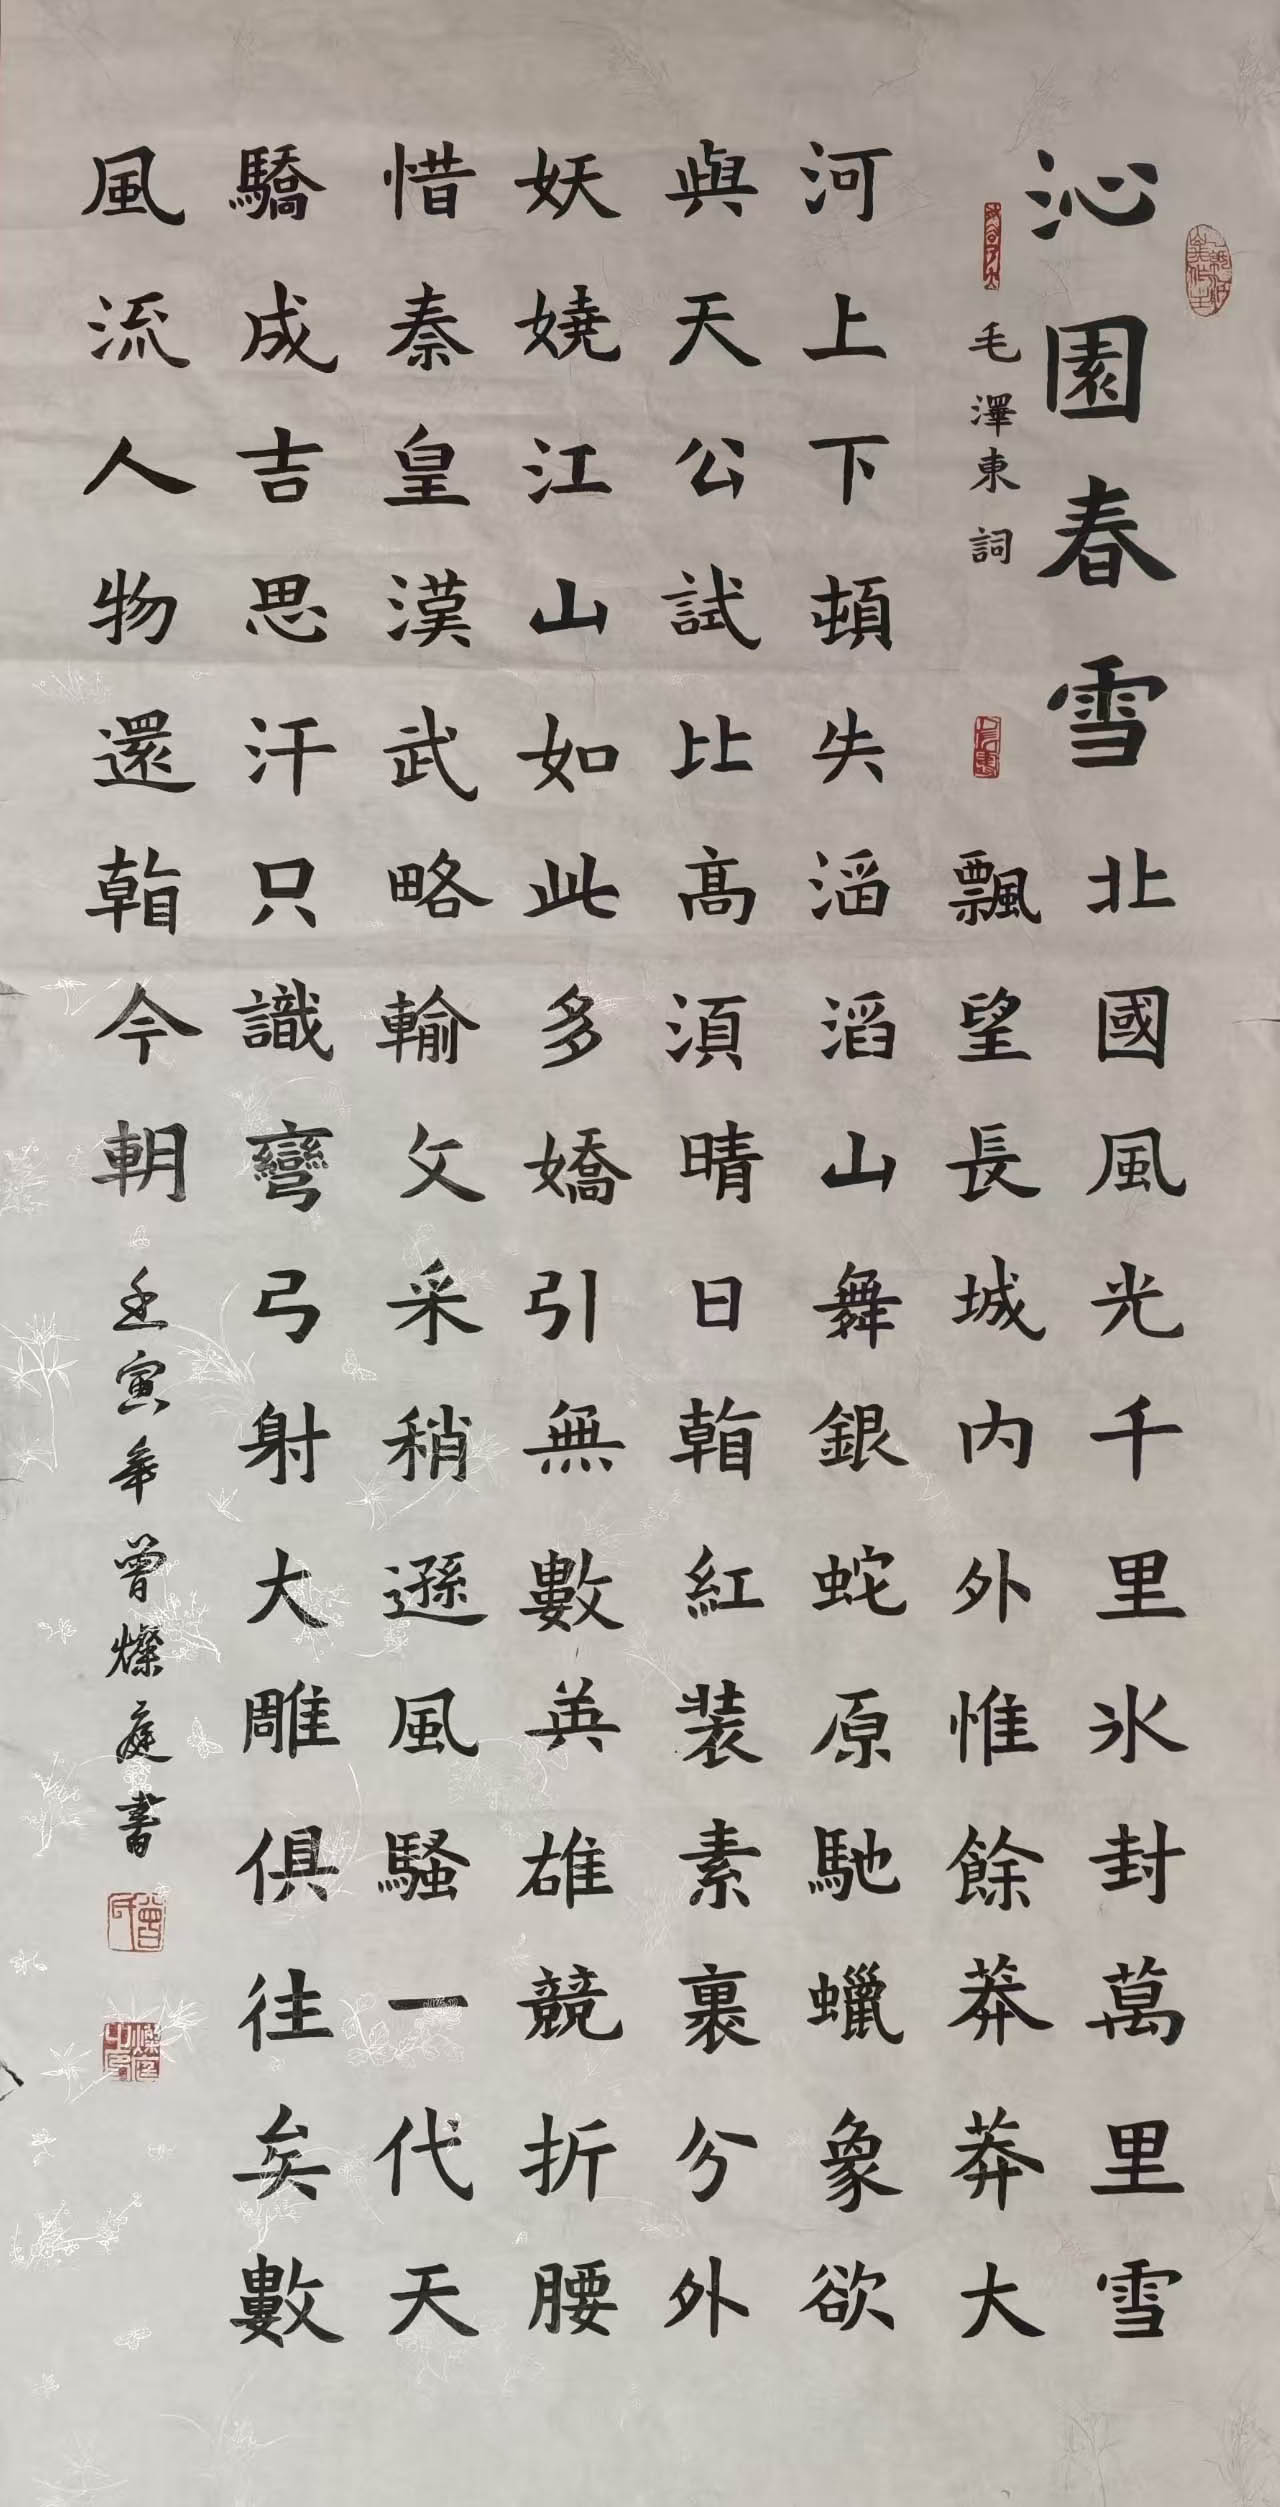 沁園春雪 北國風光千里氷封萬里雪
毛澤東詞
飄望長城内外惟餘莽莽大
河上下頓失滔滔山舞銀蛇原馳蠟象欲
與天公試比高湏晴日看紅装素裹分外
妖嬈江山如此多嬌引無數英雄競折腰
惜秦皇漢武略輸文采稍遜風騷一代天
驕成吉思汗只識彎弓射大雕俱往矣數
風流人物還看今朝
壬寅年曾燦庭書
曾氏